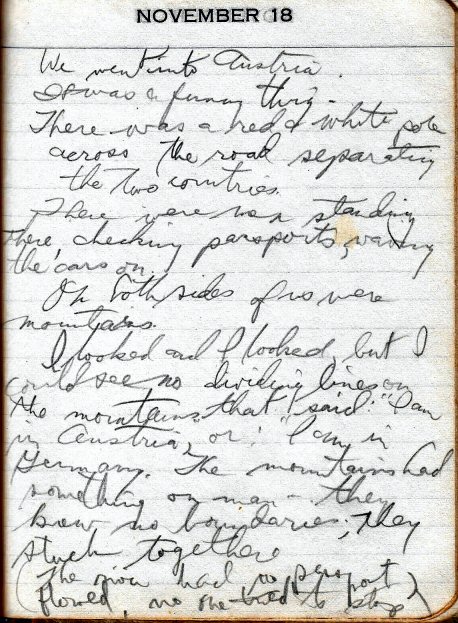 NOVEMBER 18
We went into Austria.
It was a funny thing -
There was a red & white pole
across the road separating
the two countries.
There were men standing
there, checking passports, waving
the cars on.
On both sides of us were
mountains.
I looked and I looked, but I
could see no dividing lines on
the mountains that said: "I am
in Austria," or: "I am in
Germany. The mountains had
something on man - they
knew no boundaries; They
stuck together
(The river had no passport)
flowed, no one tried to stop